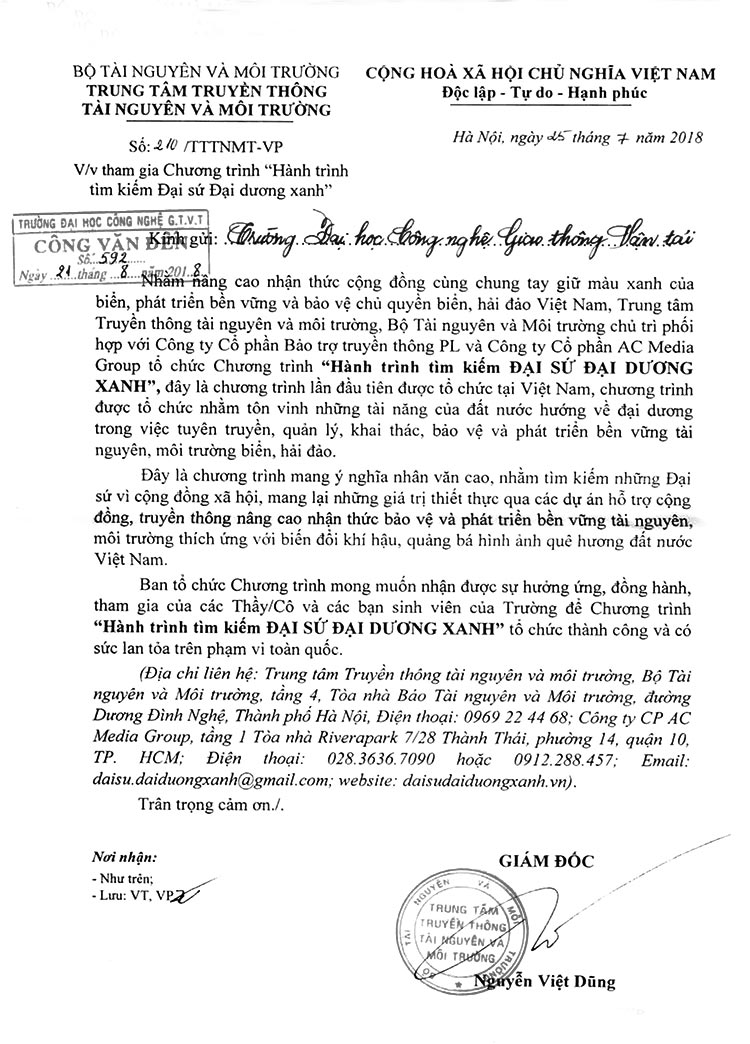 BỘ TÀI NGUYÊN VÀ MÔI TRƯỜNG
TRUNG TÂM TRUYỀN THÔNG
TÀI NGUYÊN VÀ MÔI TRƯỜNG
CỘNG HOÀ XÃ HỘI CHỦ NGHĨA VIỆT NAM
Độc lập - Tự do - Hạnh phúc
Số: 210 /TTTNMT-VP
V/v tham gia Chương trình “Hành trình
tìm kiếm Đại sứ Đại dương xanh”
Hà Nội, ngày 25 tháng 7 năm 2018
TRƯỜNG ĐẠI HỌC CÔNG NGHỆ G.T.V.T
CÔNG VĂN ĐẾN
Số: 592
Ngày 21 tháng 8 năm 2018
Kính gửi: Trường Đại học Công nghệ Giao thông Vận tải
Nhằm nâng cao nhận thức cộng đồng cùng chung tay giữ màu xanh của
biển, phát triển bền vững và bảo vệ chủ quyền biển, hải đảo Việt Nam, Trung tâm
Truyền thông tài nguyên và môi trường, Bộ Tài nguyên và Môi trường chủ trì phối
hợp với Công ty Cổ phần Bảo trợ truyền thông PL và Công ty Cổ phần AC Media
Group tổ chức Chương trình “Hành trình tìm kiếm ĐẠI SỨ ĐẠI DƯƠNG
XANH”, đây là chương trình lần đầu tiên được tổ chức tại Việt Nam, chương trình
được tổ chức nhằm tôn vinh những tài năng của đất nước hướng về đại dương
trong việc tuyên truyền, quản lý, khai thác, bảo vệ và phát triển bền vững tài
nguyên, môi trường biển, hải đảo.
Đây là chương trình mang ý nghĩa nhân văn cao, nhằm tìm kiếm những Đại
sứ vì cộng đồng xã hội, mang lại những giá trị thiết thực qua các dự án hỗ trợ cộng
đồng, truyền thông nâng cao nhận thức bảo vệ và phát triển bền vững tài nguyên,
môi trường thích ứng với biến đổi khí hậu, quảng bá hình ảnh quê hương đất nước
Việt Nam.
Ban tổ chức Chương trình mong muốn nhận được sự hưởng ứng, đồng hành,
tham gia của các Thầy/Cô và các bạn sinh viên của Trường để Chương trình
“Hành trình tìm kiếm ĐẠI SỨ ĐẠI DƯƠNG XANH” tổ chức thành công và có
sức lan tỏa trên phạm vi toàn quốc.
(Địa chỉ liên hệ: Trung tâm Truyền thông tài nguyên và môi trường, Bộ Tài
nguyên và Môi trường, tầng 4, Tòa nhà Báo Tài nguyên và Môi trường, đường
Dương Đình Nghệ, Thành phố Hà Nội, Điện thoại: 0969 22 44 68; Công ty CP AC
Media Group, tầng 1 Tòa nhà Riverapark 7/28 Thành Thái, phường 14, quận 10,
TP. HCM; Điện thoại: 028.3636.7090 hoặc 0912.288.457; Email:
daisu.daiduongxanh@gmail.com; website: daisudaiduongxanh.vn).
Trân trọng cảm ơn./.
Nơi nhận:
- Như trên;
- Lưu: VT, VP
GIÁM ĐỐC
BỘ TÀI NGUYÊN VÀ MÔI TRƯỜNG
TRUNG TÂM
TRUYỀN THÔNG
TÀI NGUYÊN VÀ
MÔI TRƯỜNG
Nguyễn Việt Dũng